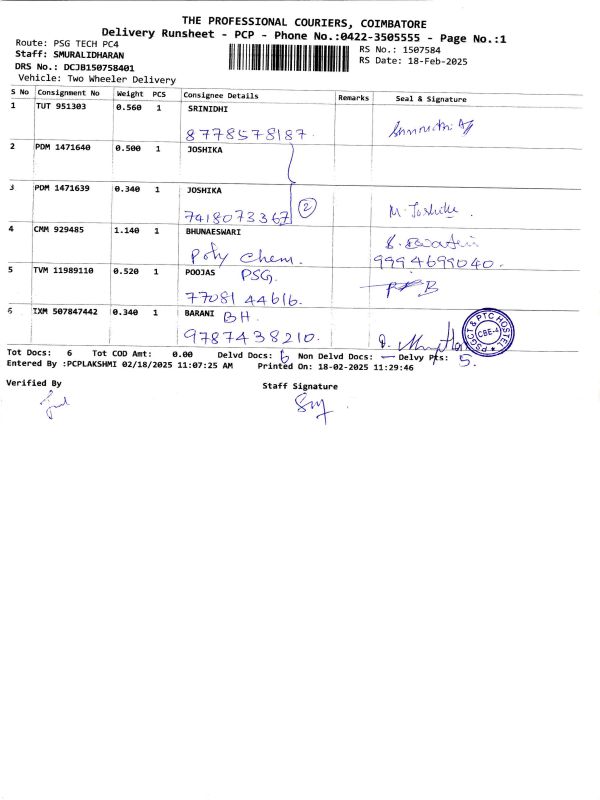 THE PROFESSIONAL COURIERS, COIMBATORE
Delivery Runsheet - PCP - Phone No.:0422-3505555 - Page No.:1
Route: PSG TECH PC4
Staff: SMURALIDHARAN
DRS No.: DCJB150758401
Vehicle: Two Wheeler Delivery
RS No.: 1507584
RS Date: 18-Feb-2025
S No Consignment No Weight PCS Consignee Details Remarks Seal & Signature
1 TUT 951303 0.560 1 SRINIDHI
8778578187.
2 PDM 1471640 0.500 1 JOSHIKA
3 PDM 1471639 0.340 1 JOSHIKA
7418073367 2 M. Joshika.
4 CMM 929485 1.140 1 BHUNAESWARI
Poly Chem. 9994699040.
5 TVM 11989110 0.520 1 POOJAS PSG.
77081 44616.
6 IXM 507847442 0.340 1 BARANI BH.
9787438210.
PSGCT & PTC HOSTEL
CBE-4
Tot Docs: 6 Tot COD Amt: 0.00 Delvd Docs: 6 Non Delvd Docs: — Delvy Pts: 5.
Entered By :PCPLAKSHMI 02/18/2025 11:07:25 AM Printed On: 18-02-2025 11:29:46
Verified By Staff Signature